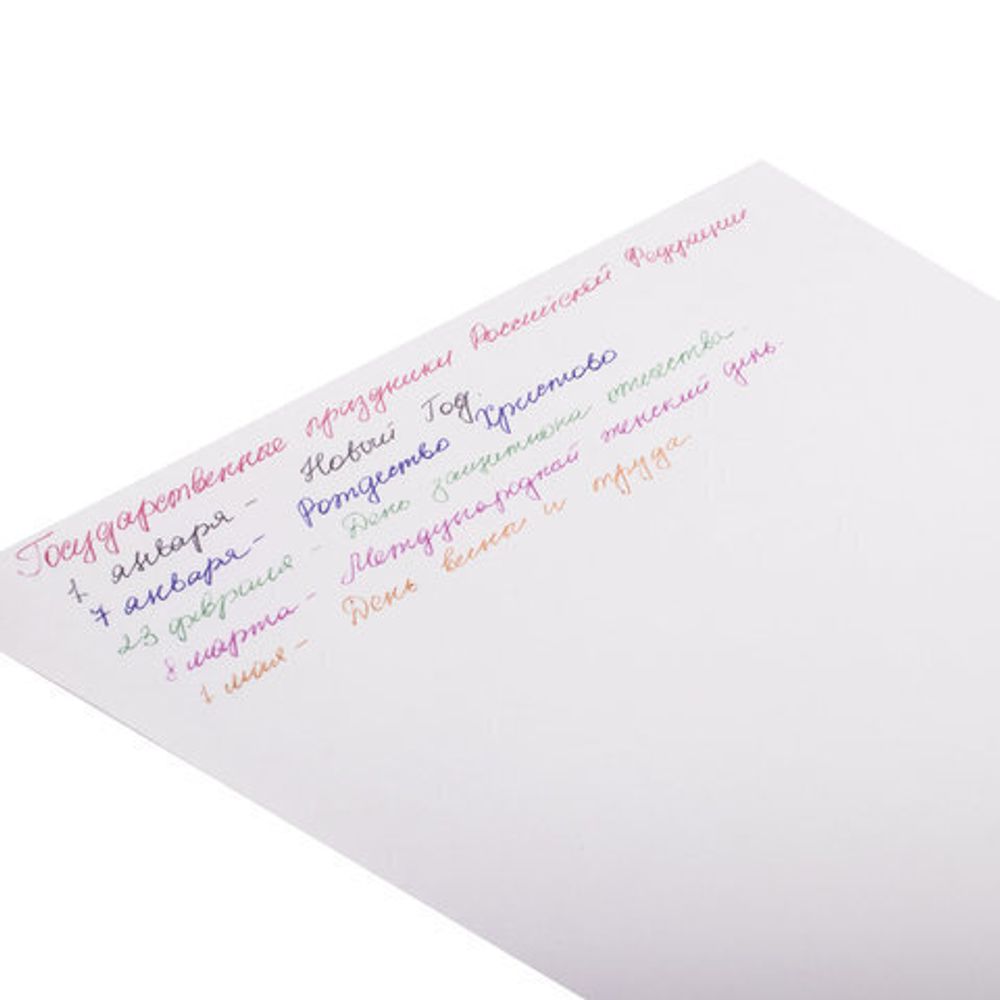 Государственные праздники Российской Федерации
1 января - Новый Год.
7 января - Рождество Христово
23 февраля - День защитника отечества.
8 марта - Международный женский день.
1 мая - День весны и труда.